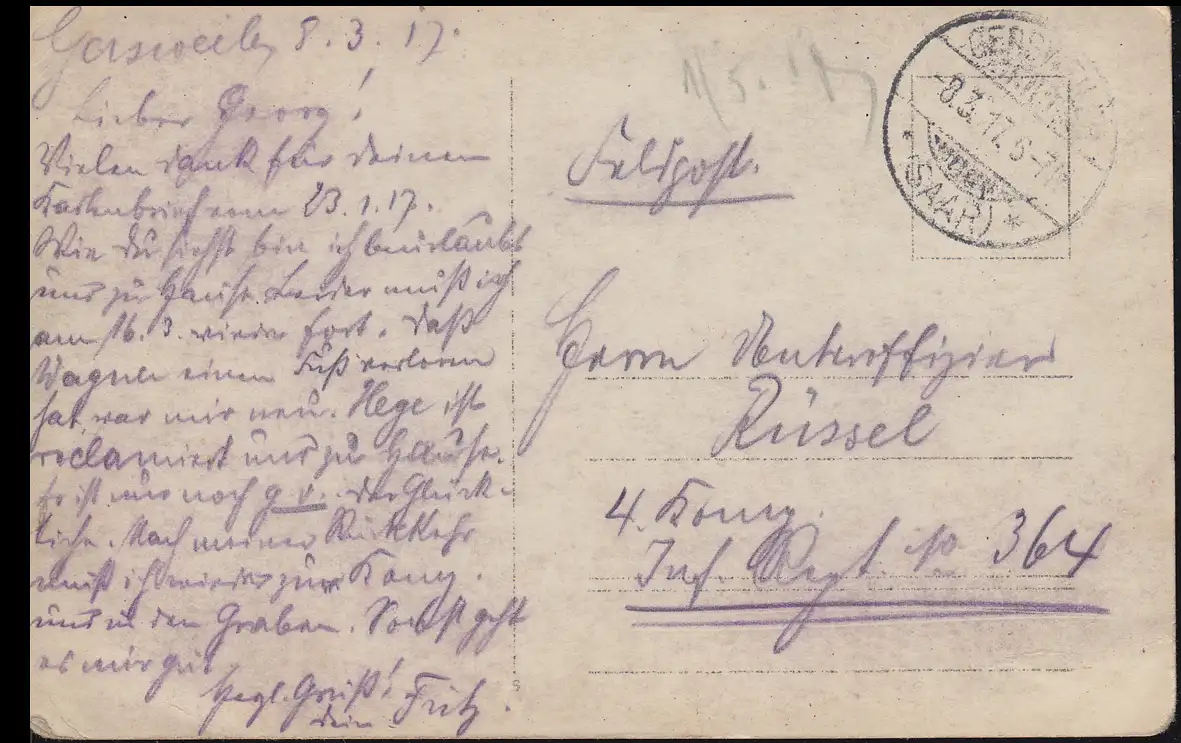 Gersweiler, 8.3.17.
Lieber Georg!
Vielen Dank für deinen
Kartenbrief vom 23.1.17.
Wie du siehst bin ich beurlaubt
und zu Hause. Leider muß ich
am 16.3. wieder fort. Daß
Wagner einen Fuß verloren
hat, war mir neu. Hege ist
reclamiert und zu Hause.
Er ist nur noch g.v. der Glück-
liche. Nach meiner Rückkehr
muß ich wieder zur Komp.
und in den Graben. Sonst geht
es mir gut.
Herzl. Gruß!
dein Fritz.
Feldpost.
GERSWEILER
-8.3.17. 6-7
* (SAAR) *
Herrn Unteroffizier
Rüssel
4. Komp.
Inf. Regt. No 364